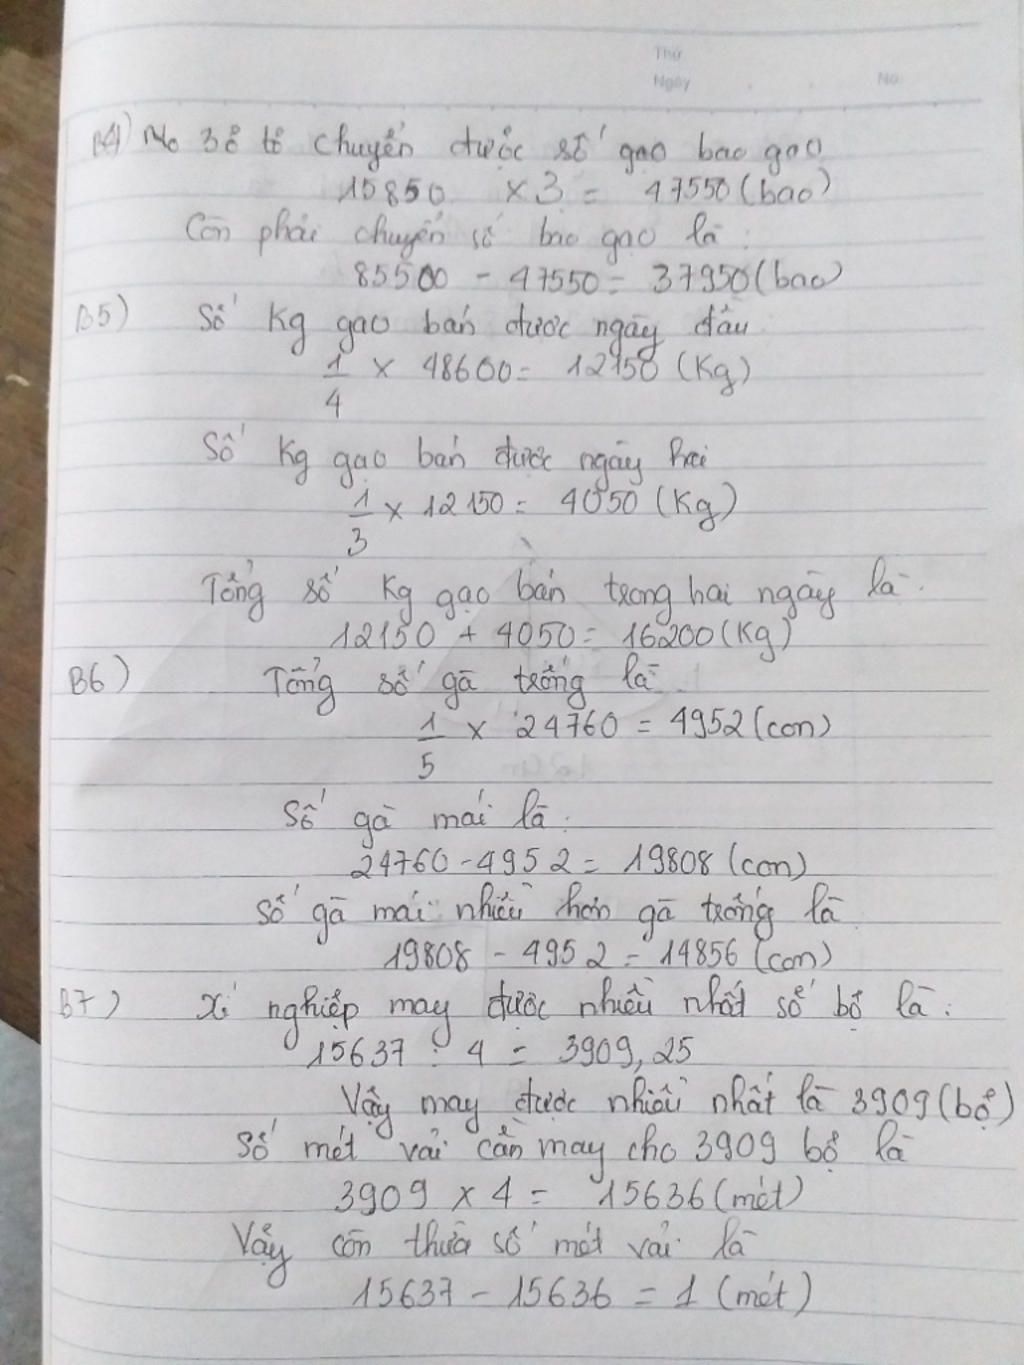 Thứ
Ngày No.
B4) 3 ô tô chuyển được số gạo bao gạo
15850 x 3 = 47550 (bao)
Còn phải chuyển số bao gạo là :
85500 - 47550 = 37950 (bao)
B5) Số Kg gạo bán được ngày đầu
1/4 x 48600 = 12150 (Kg)
Số Kg gạo bán được ngày hai
1/3 x 12150 = 4050 (Kg)
Tổng số Kg gạo bán trong hai ngày là
12150 + 4050 = 16200 (Kg)
B6) Tổng số gà trống là
1/5 x 24760 = 4952 (con)
Số gà mái là
24760 - 4952 = 19808 (con)
Số gà mái nhiều hơn gà trống là
19808 - 4952 = 14856 (con)
B7) Xí nghiệp may được nhiều nhất số bộ là :
15637 : 4 = 3909,25
Vậy may được nhiều nhất là 3909 (bộ)
Số mét vải cần may cho 3909 bộ là
3909 x 4 = 15636 (mét)
Vậy còn thừa số mét vải là
15637 - 15636 = 1 (mét)